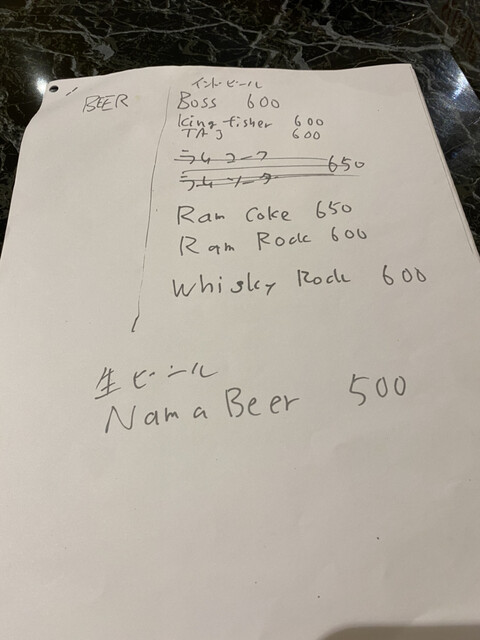 BEER
インド・ビール
Boss 600
king fisher 600
TAJ 600
ラムコーク 650
ラムソーダ
Ram Coke 650
Ram Rock 600
Whisky Rock 600
生ビール
Nama Beer 500